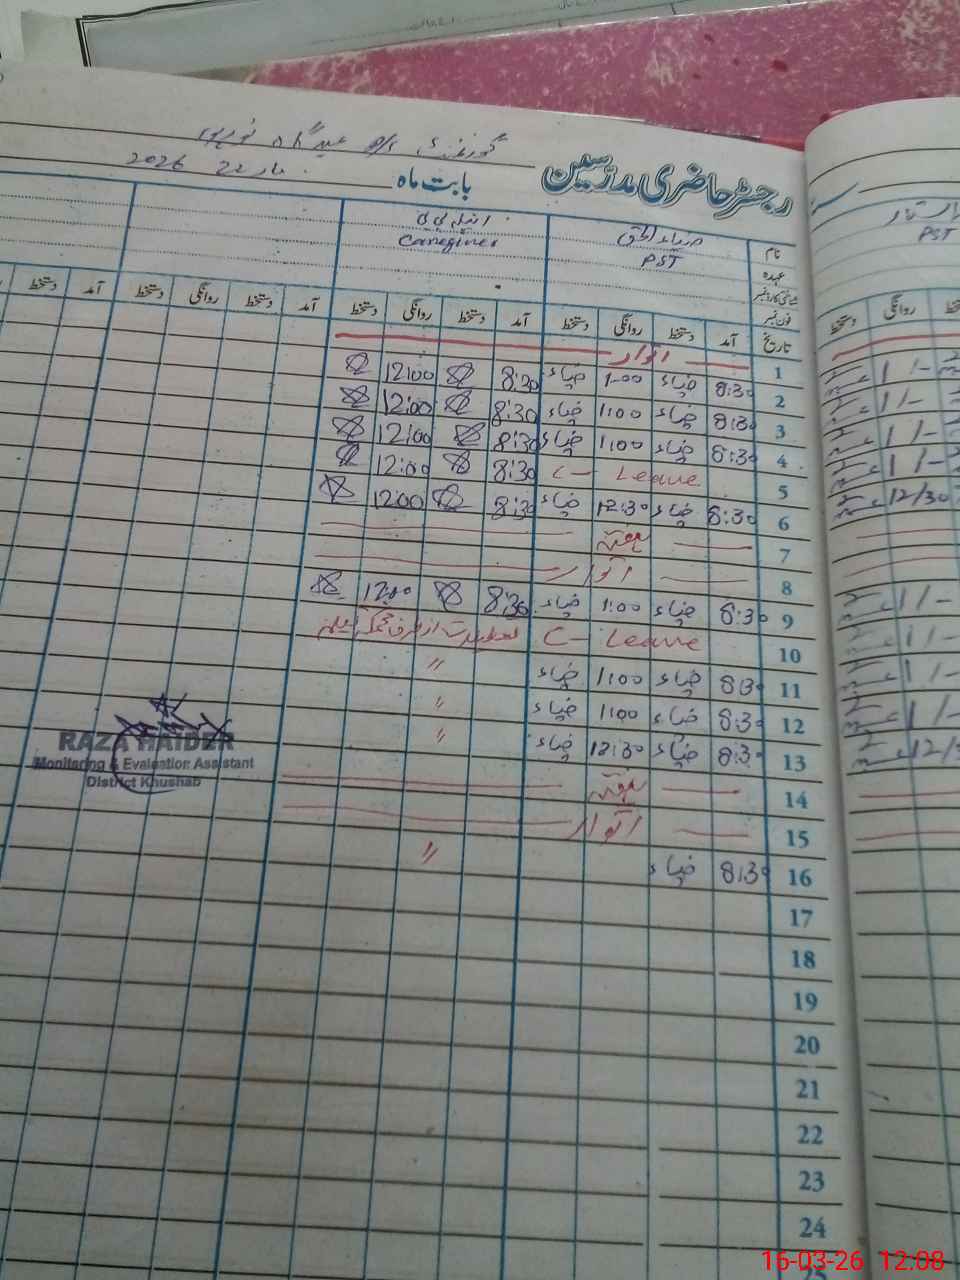 رجسٹر حاضری مدرسین
بابت ماہ مارچ 2026
نام ضیاء الحق
عہدہ PST Caregiver
شناختی کارڈ نمبر
فون نمبر
تاریخ آمد دستخط روانگی دستخط آمد دستخط روانگی دستخط آمد دستخط روانگی دستخط آمد
1 اتوار
2 8:30 ضیاء 1:00 ضیاء 8:30 12:00
3 8:30 ضیاء 1:00 ضیاء 8:30 12:00
4 8:30 ضیاء 1:00 ضیاء 8:30 12:00
5 C- Leave 8:30 12:00
6 8:30 ضیاء 12:30 ضیاء 8:30 12:00
7 ہفتہ
8 اتوار
9 8:30 ضیاء 1:00 ضیاء 8:30 12:00
10 C- Leave
11 8:30 ضیاء 1:00 ضیاء "
12 8:30 ضیاء 1:00 ضیاء "
13 8:30 ضیاء 12:30 ضیاء "
14 ہفتہ
15 اتوار
16 8:30 ضیاء "
17
18
19
20
21
22
23
24
RAZA HAIDER
Monitoring & Evaluation Assistant
District Khushab
PST
روانگی دستخط
1/-
1/-
1/-
1/-
12/30
1/-
1/-
1/-
1/-
16-03-26 12:08